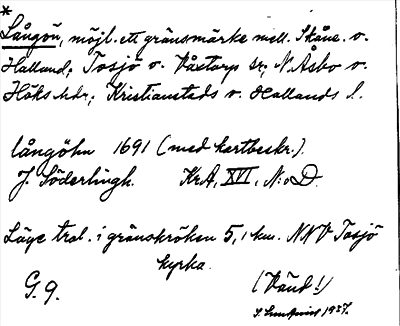 *
Långön, möjl. ett gränsmärke mell. Skåne o.
Halland; Tosjö o. Våxtorp sr; N. Åsbo o.
Höks hdr; Kristianstads o. Hallands l.
långöhn 1691 (med kartbeskr.).
J. Söderlingh. KrA, XVI, N:o D.
Läge trol. i gränskröken 5,1 km. NNV Tosjö
kyrka.
G. 9.
(Vänd!)
1937.